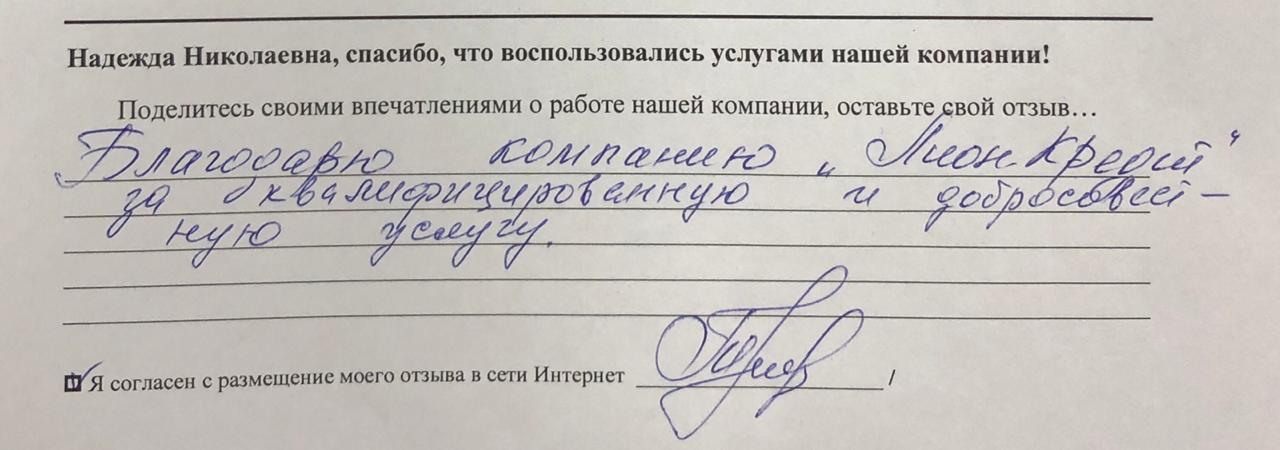 Надежда Николаевна, спасибо, что воспользовались услугами нашей компании!
Поделитесь своими впечатлениями о работе нашей компании, оставьте свой отзыв...
Благодарю компанию „Лион Кредит"
за квалифицированную и добросовест-
ную услугу.
Я согласен с размещение моего отзыва в сети Интернет /